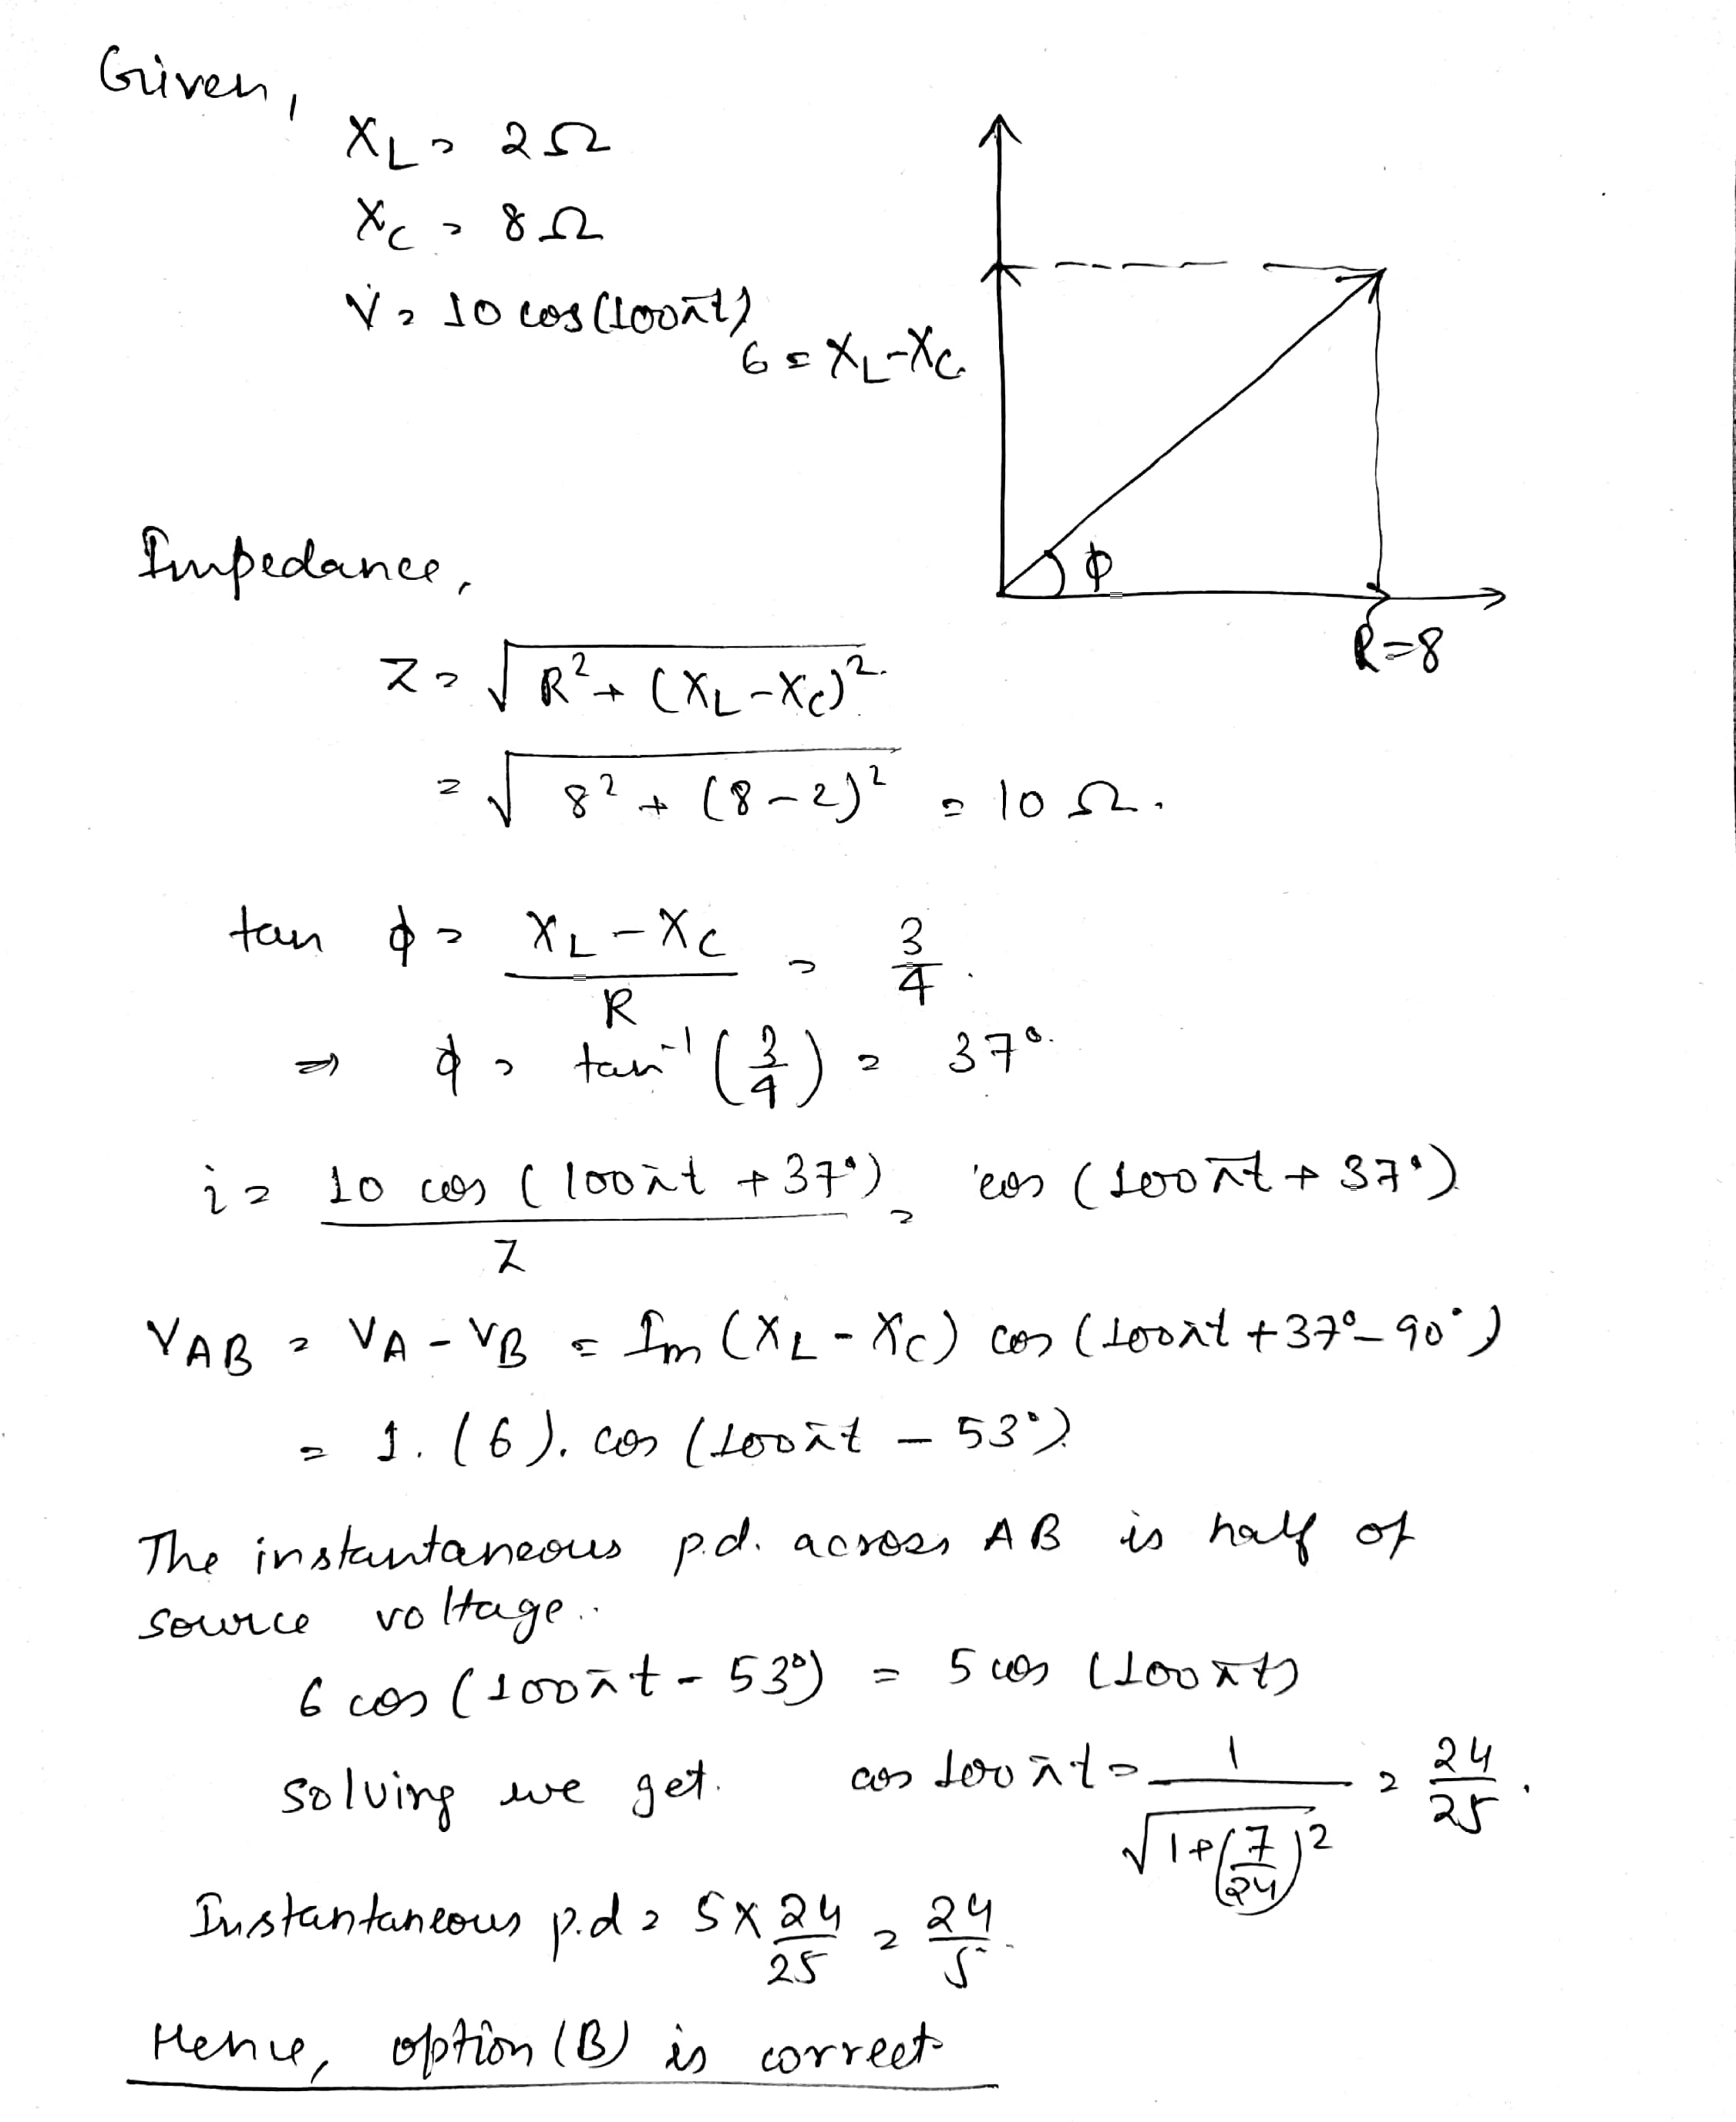 Given,
X_L = 2Ω
X_C = 8Ω
V = 10 cos(100πt)
6 = X_L-X_C
ϕ
R=8
Impedance,
Z = √(R² + (X_L-X_C)²)
= √(8² + (8-2)²) = 10 Ω.
tan ϕ = (X_L-X_C)/R = 3/4.
⇒ ϕ = tan⁻¹(3/4) = 37°.
i = 10 cos (100πt +37°)/Z = cos (100πt + 37°)
V_AB = V_A - V_B = Im (X_L - X_C) cos (100πt +37°-90°)
= 1.(6). cos (100πt - 53°).
The instantaneous p.d. across AB is half of
source voltage.
6 cos (100πt - 53°) = 5 cos (100πt)
solving we get. cos 100πt = 1/√(1+(7/24)²) = 24/25.
Instantaneous p.d = 5×24/25 = 24/5.
Hence, option (B) is correct